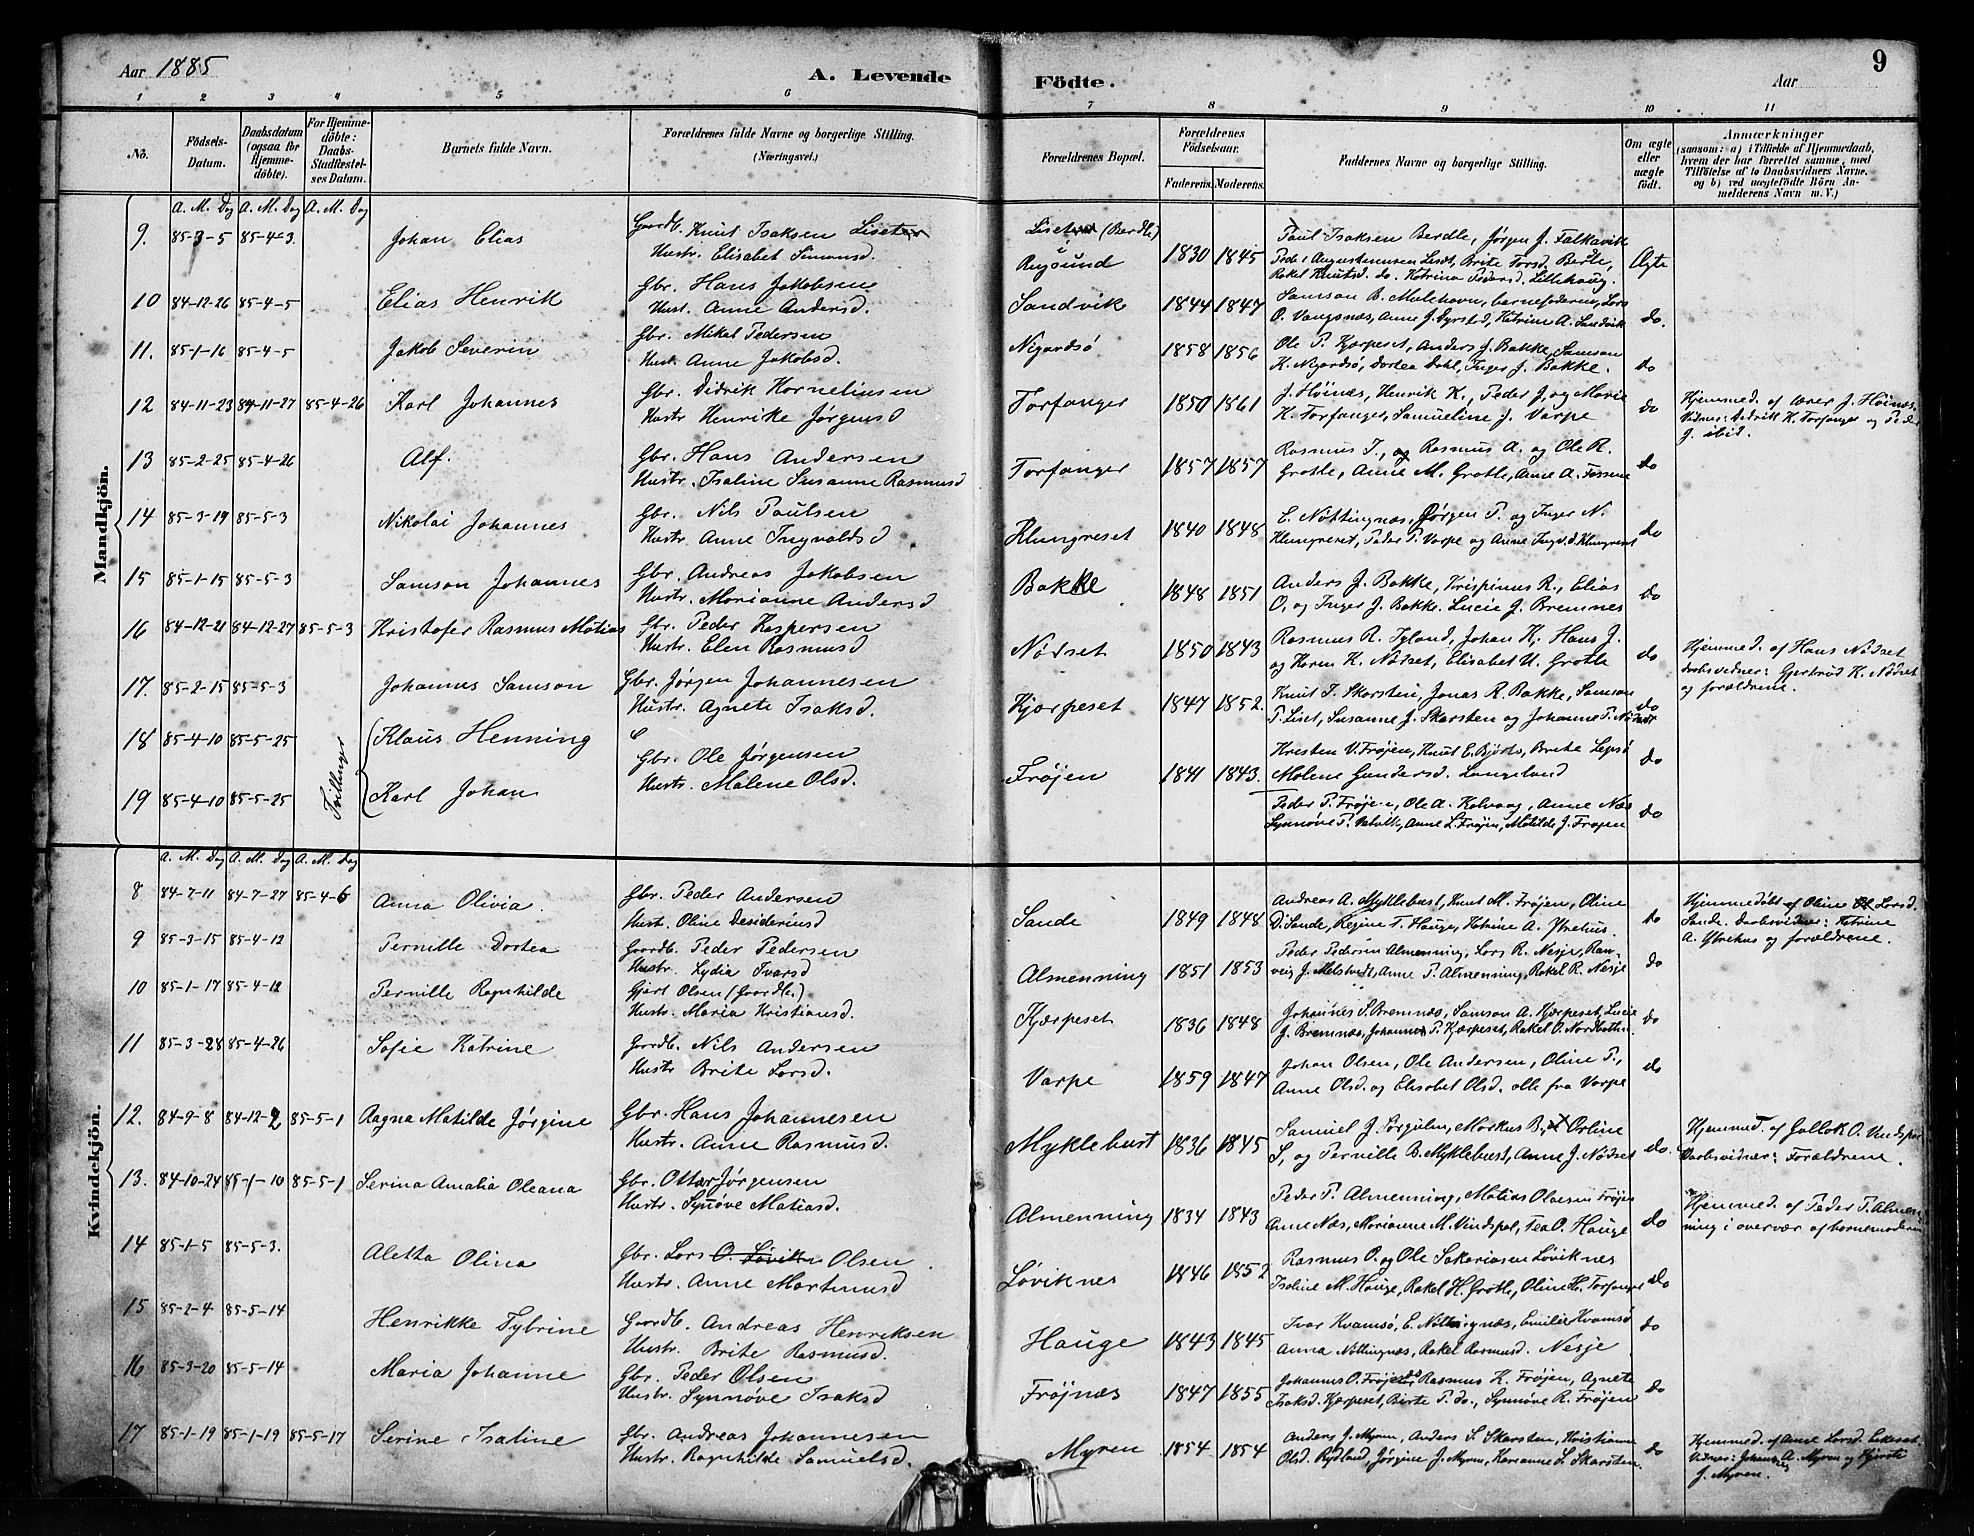 Aar 1885
A. Levende
Födte.
Aar
9
1 2 3 4 5 6 7 8 9 10 11
No.
Födsels-Datum.
Daabsdatum (ogsaa for Hjemmedöbte).
For Hjemmedöbte: Daabs-Stadfæstelses Datum.
Barnets fulde Navn.
Forældrenes fulde Navne og borgerlige Stilling.
(Næringsvei.)
Forældrenes Bopæl.
Forældrenes Födselsaar.
Faderens. Moderens.
Faddernes Navne og borgerlige Stilling.
Om ægte eller uægte födt.
Anmærkninger
(saasom: a) i Tilfælde af Hjemmedaab, hvem der har forrettet samme, med Tilföielse af to Daabsvidners Navne, og b) ved uægtefödte Börn Anmelderens Navn m. V.)
Mandkjön.
A. M. Dag A. M. Dag A. M. Dag
9. 85-3-5 85-4-3. Johan Elias Gaardb. Knut Isaksen Hustr. Elisabet Simonsd. (Berdle) Rugsund 1830 1845 Paul Isaksen Berdle, Jørgen J. Falkavik Ægte
10 84-12-26 85-4-5 Elias Henrik Gbr. Hans Jakobsen Hust. Anne Andersd. Sandvik 1844 1847 Samson B. Mulehavn, barnefaderen, Lars O. Vangsnæs, Anne J. Dyrstad, Katrine A. Sandvik do.
11. 85-1-16 85-4-5 Jakob Severin Gbr. Mikal Pedersen Hust. Anne Jakobsd. Nigardsø 1858 1856 Ole P. Kjærpeset, Anders J. Bakke, Samson K. Nigardsø, Dortea Dahl, Inger J. Bakke. do
12 84-11-23 84-11-27 85-4-26 Karl Johannes Gbr. Didrik Kornelius­en Hustr Henrike Jørgensd Torfanger 1850 1861 J. Höinæs, Henrik K., Peder J. og Marie K. Torfanger, Samueline J. Varpe do Hjemmed. af lærer J. Höinæs. Vidner: Didrik K. Torfanger og Peder J. ibid.
13 85-2-25 85-4-26 Alf. Gbr. Hans Andersen Hustr. Isaline Susanne Rasmusd Torfanger 1857 1857 Rasmus I., og Rasmus A. og Ole R. Grotle, Anne M. Grotle, Anne A. do
14 85-3-19 85-5-3 Nikolai Johannes Gbr. Nils Paulsen Hustr Anne Ingvaldsd Klungreset 1840 1848 E. Nöttingnæs, Jørgen P. og Inger N. Klungreset, Peder P. Varpe og Anne Ingv.d. Klungreset do
15 85-1-15 85-5-3 Samson Johannes Gbr. Andreas Jakobsen Hustr. Marianne Andersd Bakke 1848 1851 Anders J. Bakke, Krispinus R., Elias O, og Inger J. Bakke. Lucie J. Bremnes do
16 84-12-21 84-12-27 85-5-3 Kristofer Rasmus Matias Gbr. Peder Kaspersen Hustr. Elen Rasmusd Nødset 1850 1843 Rasmus R. Igland, Johan K, Hans J. og Karen K. Nødset, Elisabet U. Grotle do Hjemmed. af Hans Nødset daabsvidner: Gjertrud K. Nødset og forældrene.
17. 85-2-15 85-5-3 Johannes Samson Gbr. Jørgen Johannesen Hustr. Agnete Isaksd. Kjærpeset 1847 1852. Knut T. Skarstein, Jonas R. Bakke, Samson P. Liset, Susanne J. Skarsten og Johanne P. Nødset do
18 85-4-10 85-5-25 Klaus Henning
Tvillinger
Gbr. Ole Jørgensen Hustr. Malene Olsd. Frøjen 1841 1843. Kristen V. Frøjen, Knut E. Bjørk, Brite Lepsø Malene Gundersd. Langeland do
19 85-4-10 85-5-25 Karl Johan Peder P. Frøjen, Ole A. Kalvaag, Anne Næs Synnøve P. Anne L. Frøjen, Matilde J. Frøjen do
Kvindekjön.
A. M. Dag A. M. Dag A. M. Dag
8 84-7-11 84-7-27 85-4-6 Anna Olivia. Gbr. Peder Andersen Hust. Oline Desideriusd Sande 1849 1848 Andreas A. Myklebust, Knut M. Frøjen, Oline D. Sande, Regine T. Hauge, Katrine A. Ytrehus. do Hjemmedøbt af Oline Larsd. Sande. Daabsvidner: Katrine A. Ytrehus og forældrene.
9 85-3-15 85-4-12 Pernille Dortea Gaardb. Peder Pedersen Hustr. Lydia Ivarsd Almenning 1851 1853 Peder Pedersen Almenning, Lars R. Nesje, Ranveig J. Melstvedt, Anne P. Almenning, Rakel R. Nesje do
10 85-1-17 85-4-12 Pernille Ragnhilde Gjert Olsen (Gaardb.) Hustr. Maria Kristiansd. Kjærpeset 1836 1848 Johannes S. Bremnæs, Samson A. Kjærpeset, Lucie J. Bremnæs, Johanne P. Kjærpeset, Rakel O. do
11 85-3-28 85-4-26 Sofie Katrine Gaardb. Nils Andersen Hustr Brite Larsd. Varpe 1859 1847 Johan Olsen, Ole Andersen, Oline P., Anne Olsd. og Elisabet Olsd. alle fra Varpe do
12. 84-9-8 84-12-2 85-5-1 Ragna Matilde Jørgine Gbr. Hans Johannesen Hustr. Anne Rasmusd. Myklebust 1836 1845 Samuel J. Markus B, Orline S, og Pernille B. Myklebust, Anne J. Nødset do. Hjemmed. af Gallok O. Vindspol Daabsvidner: Forældrene.
13. 84-10-24 85-1-10 85-5-1 Serina Amalia Oleana Gbr. Ottar Jørgensen Hustr. Synøve Matiasd. Almenning 1834 1843 Peder P. Almenning, Matias Olaisen Frøjen Anne Næs, Marianne M. Vindspol, Tea O. Hauge do Hjemmed. af Peder P. Almenning i overvær af barnemoderen
14 85-1-5 85-5-3. Aletta Olina Gbr. Lars O. Løvikn Olsen Hustr. Anne Martinusd Løviknes 1846 1852 Rasmus O. og Ole Sakariasen Løviknes Isaline M. Hauge, Rakel H. Grotle, Oline H. Torfanger do
15 85-2-4 85-5-14 Henrikke Tybrine Gaardb. Andreas Henriksen Hustr. Brite Rasmusd. Hauge 1843 1845 Ivar Kvamsø, E. Nöttingnæs, Emilie Kvamsø Anna Nöttingnæs, Rakel Rasmusd. Nesje do
16 85-3-20 85-5-14 Maria Johanne Gbr. Peder Olsen Hustr. Synnøve Isaksd Frøjnæs 1847 1855 Johannes O. Rasmus K. Frøjen, Agnete Isaksd. Kjærpeset, Birte P. do., Synnøve R. Frøjen do
17 85-1-19 85-1-19 85-5-17 Serine Isaline Gbr. Andreas Johannesen Hustr. Ragnhilde Samuelsd. Myren 1854 1854 Anders J. Myren, Anders S. Skarsten, Kristianne Olsd. Rylland, Jørgine J. Myren, Karianne S. Skarsten. do Hjemmed. af Anne Larsd. Vidner: Johannes A. Myren og J. Myren.